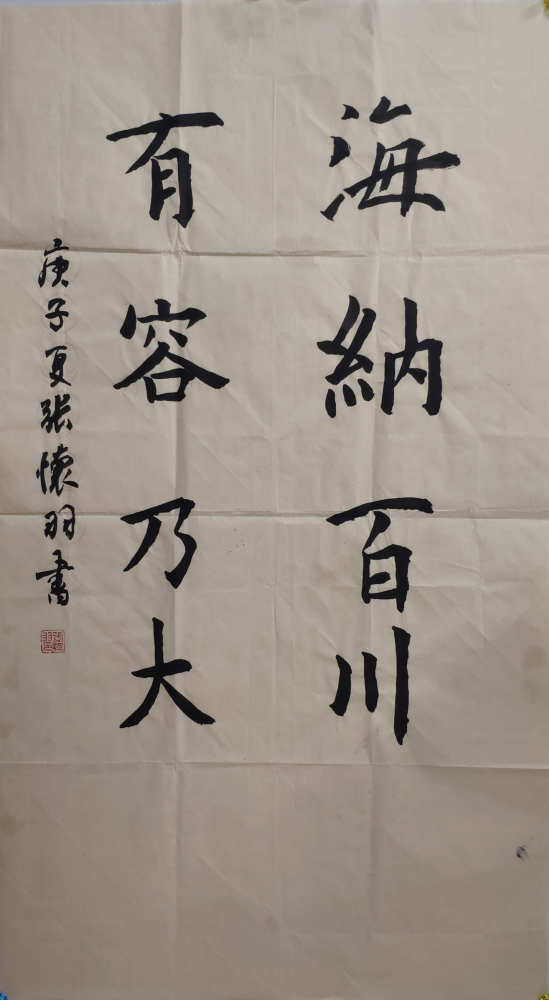 海納百川
有容乃大
庚子夏張懷羽書